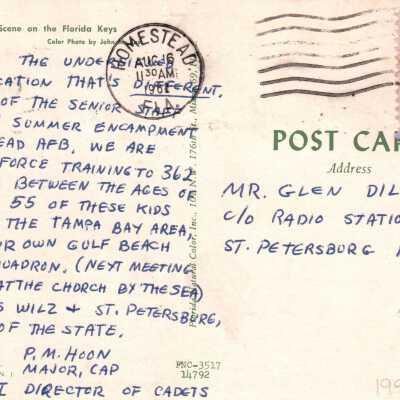 Scene on the Florida Keys
Color Photo by John
HOMESTEAD
AUG 16
11 30 AM
196
FLA.
THE UNDERSIGNED
CATION THAT'S DIFFERENT.
OF THE SENIOR STAFF
SUMMER ENCAMPMENT
EAD AFB. WE ARE
FORCE TRAINING TO 362
BETWEEN THE AGES OF
55 OF THESE KIDS
THE TAMPA BAY AREA
R OWN GULF BEACH
QUADRON. (NEXT MEETING
AT THE CHORCH BY THE SEA)
S WILZ + ST. PETERSBURG,
OF THE STATE.
P. M. HOON
MAJOR, CAP
I DIRECTOR OF CADETS
Florida Natural Color, Inc., 10 N.W. 176th St., Miami 69,
FNC-3517
14792
POST CAR
Address
MR. GLEN DIL
C/O RADIO STATIO
ST. PETERSBURG
199